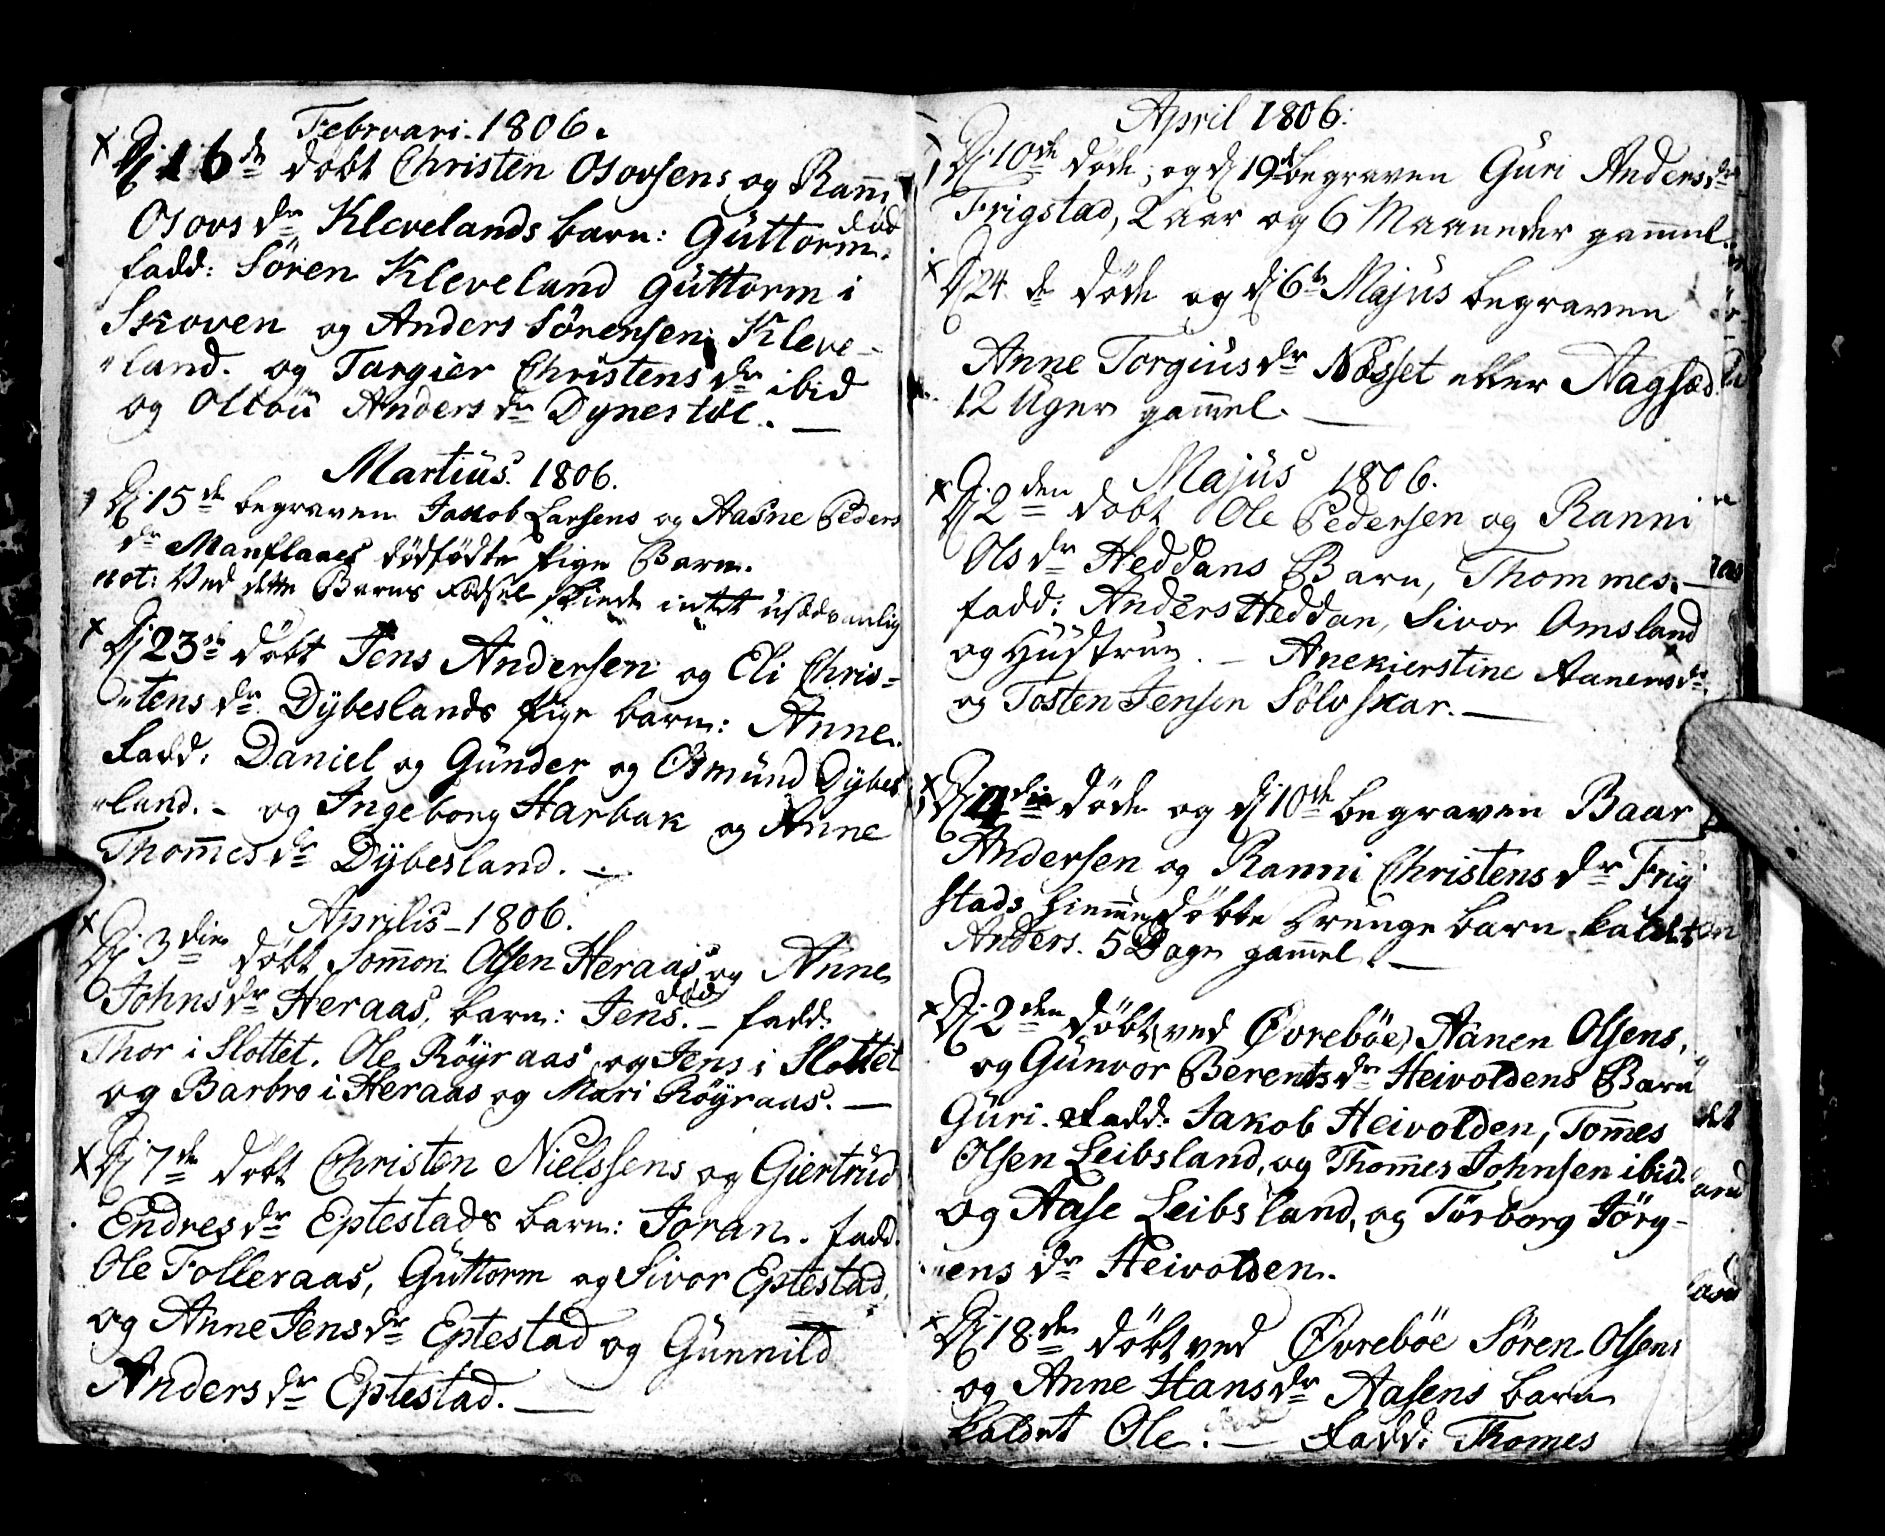 Februari. 1806.
x D. 16de döbt Christen Osovsens og Rann̄i
Osovs dr Klevelands barn: Güttorm. död
fadd: Sören Kleveland Güttorm i
Skoven og Anders Sörensen Kleve-
land. og Targier Christens dr ibid
og Ollou Anders dr Dynestöl. —
Martius. 1806.
D. 15de begraven Jakob Larsens og Aasne Peders
dr Manflaaes dödfödte Pige Barn.
not: Ved dette Barns Födsel skiede intet usædvanlig
x D. 23de döbt Jens Andersen og Eli Chris=
tens dr Dÿbeslands Pige barn: Anne.
Fadd: Daniel og Günder og Osmünd Dÿbes
land. - og Ingeborg Harbak og Anne
Thom̄es dr Dÿbesland. —
Aprilis - 1806.
x D. 3die döbt Som̄on Olsen Heraas og Anne
Johns dr Heraas, barn: Jens. död - fadd:
Thor i Slottet. Ole Röÿraas og Jens i Slottet
og Barbro i Heraas og Mari Röÿraas. —
x D. 7de döbt Christen Nielssens og Giertrüd
Endres dr Eptestads barn: Joran. fadd.
Ole Folleraas, Güttorm og Sivor Eptestad,
og Anne Jens dr Eptestad og Günnild
Anders dr Eptestad. —
April 1806:
D. 10de döde, og d. 19de begraven Güri Anders dr
Frigstad, 2 aar og 6 Maaneder gam̄el.
x D. 24de döde og d. 6te Majüs begraven
Anne Torgiüs dr Næsset eller Aagsæd.
12 Uger gam̄el. —
Majüs 1806.
x D. 2den döbt Ole Pedersen og Ranni
Ols dr Heddans Barn, Thommes. —
fadd: Anders Heddan, Sivor Omsland
og Hüstrue. - Anekierstine Aanens dr
og Tosten Jensen Sölvskar. —
x D. 4die döde og d. 10de begraven Baar
Andersen og Ranni Christens dr Frig
stads hiem̄edöbte Drenge barn kaldet
Anders. 5 Dage gam̄el. —
x D. 2den döbt (ved Øvreböe) Aanen Olsens,
og Gunvor Berents dr Heivoldens Barn
Güri. Fadd: Jakob Heivolden, Tom̄es
Olsen Leibsland, og Thom̄es Johnsen ibid.
og Aase Leibsland, og Törborg Jörg-
ens dr Heivolden.
x D. 18den döbt ved Øvreböe Sören Olsens
og Anne Hans dr Aasens barn
kaldet Ole. — Fadd: Thomes